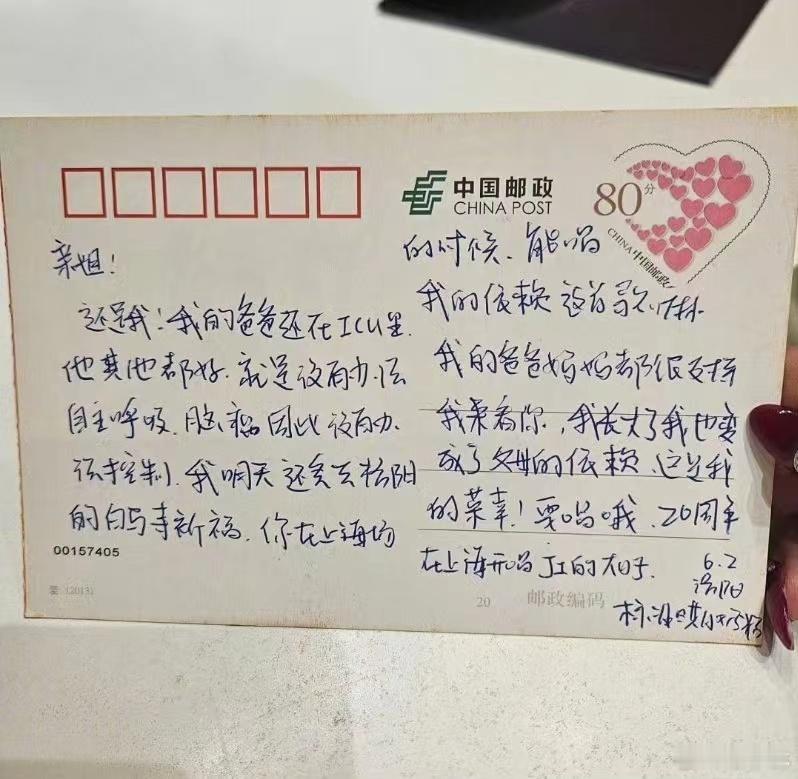 中国邮政
CHINA POST
80分
CHINA中国邮政
亲姐!
还是我!我的爸爸还在ICU里.
他其他都好.就是没有办法
自主呼吸.脑 因此没有办
法控制.我明天还会去洛阳
的白马寺祈福.你在上海场
的时候、能唱
我的依赖 这首歌
我的爸爸妈妈都很支持
我来看你,我长大了我也变
成了父母的依赖、这是我
的荣幸!要唱哦.20周年
在上海开唱 的 子.
6.2
洛阳
00157405
(2013)
20
邮政编码